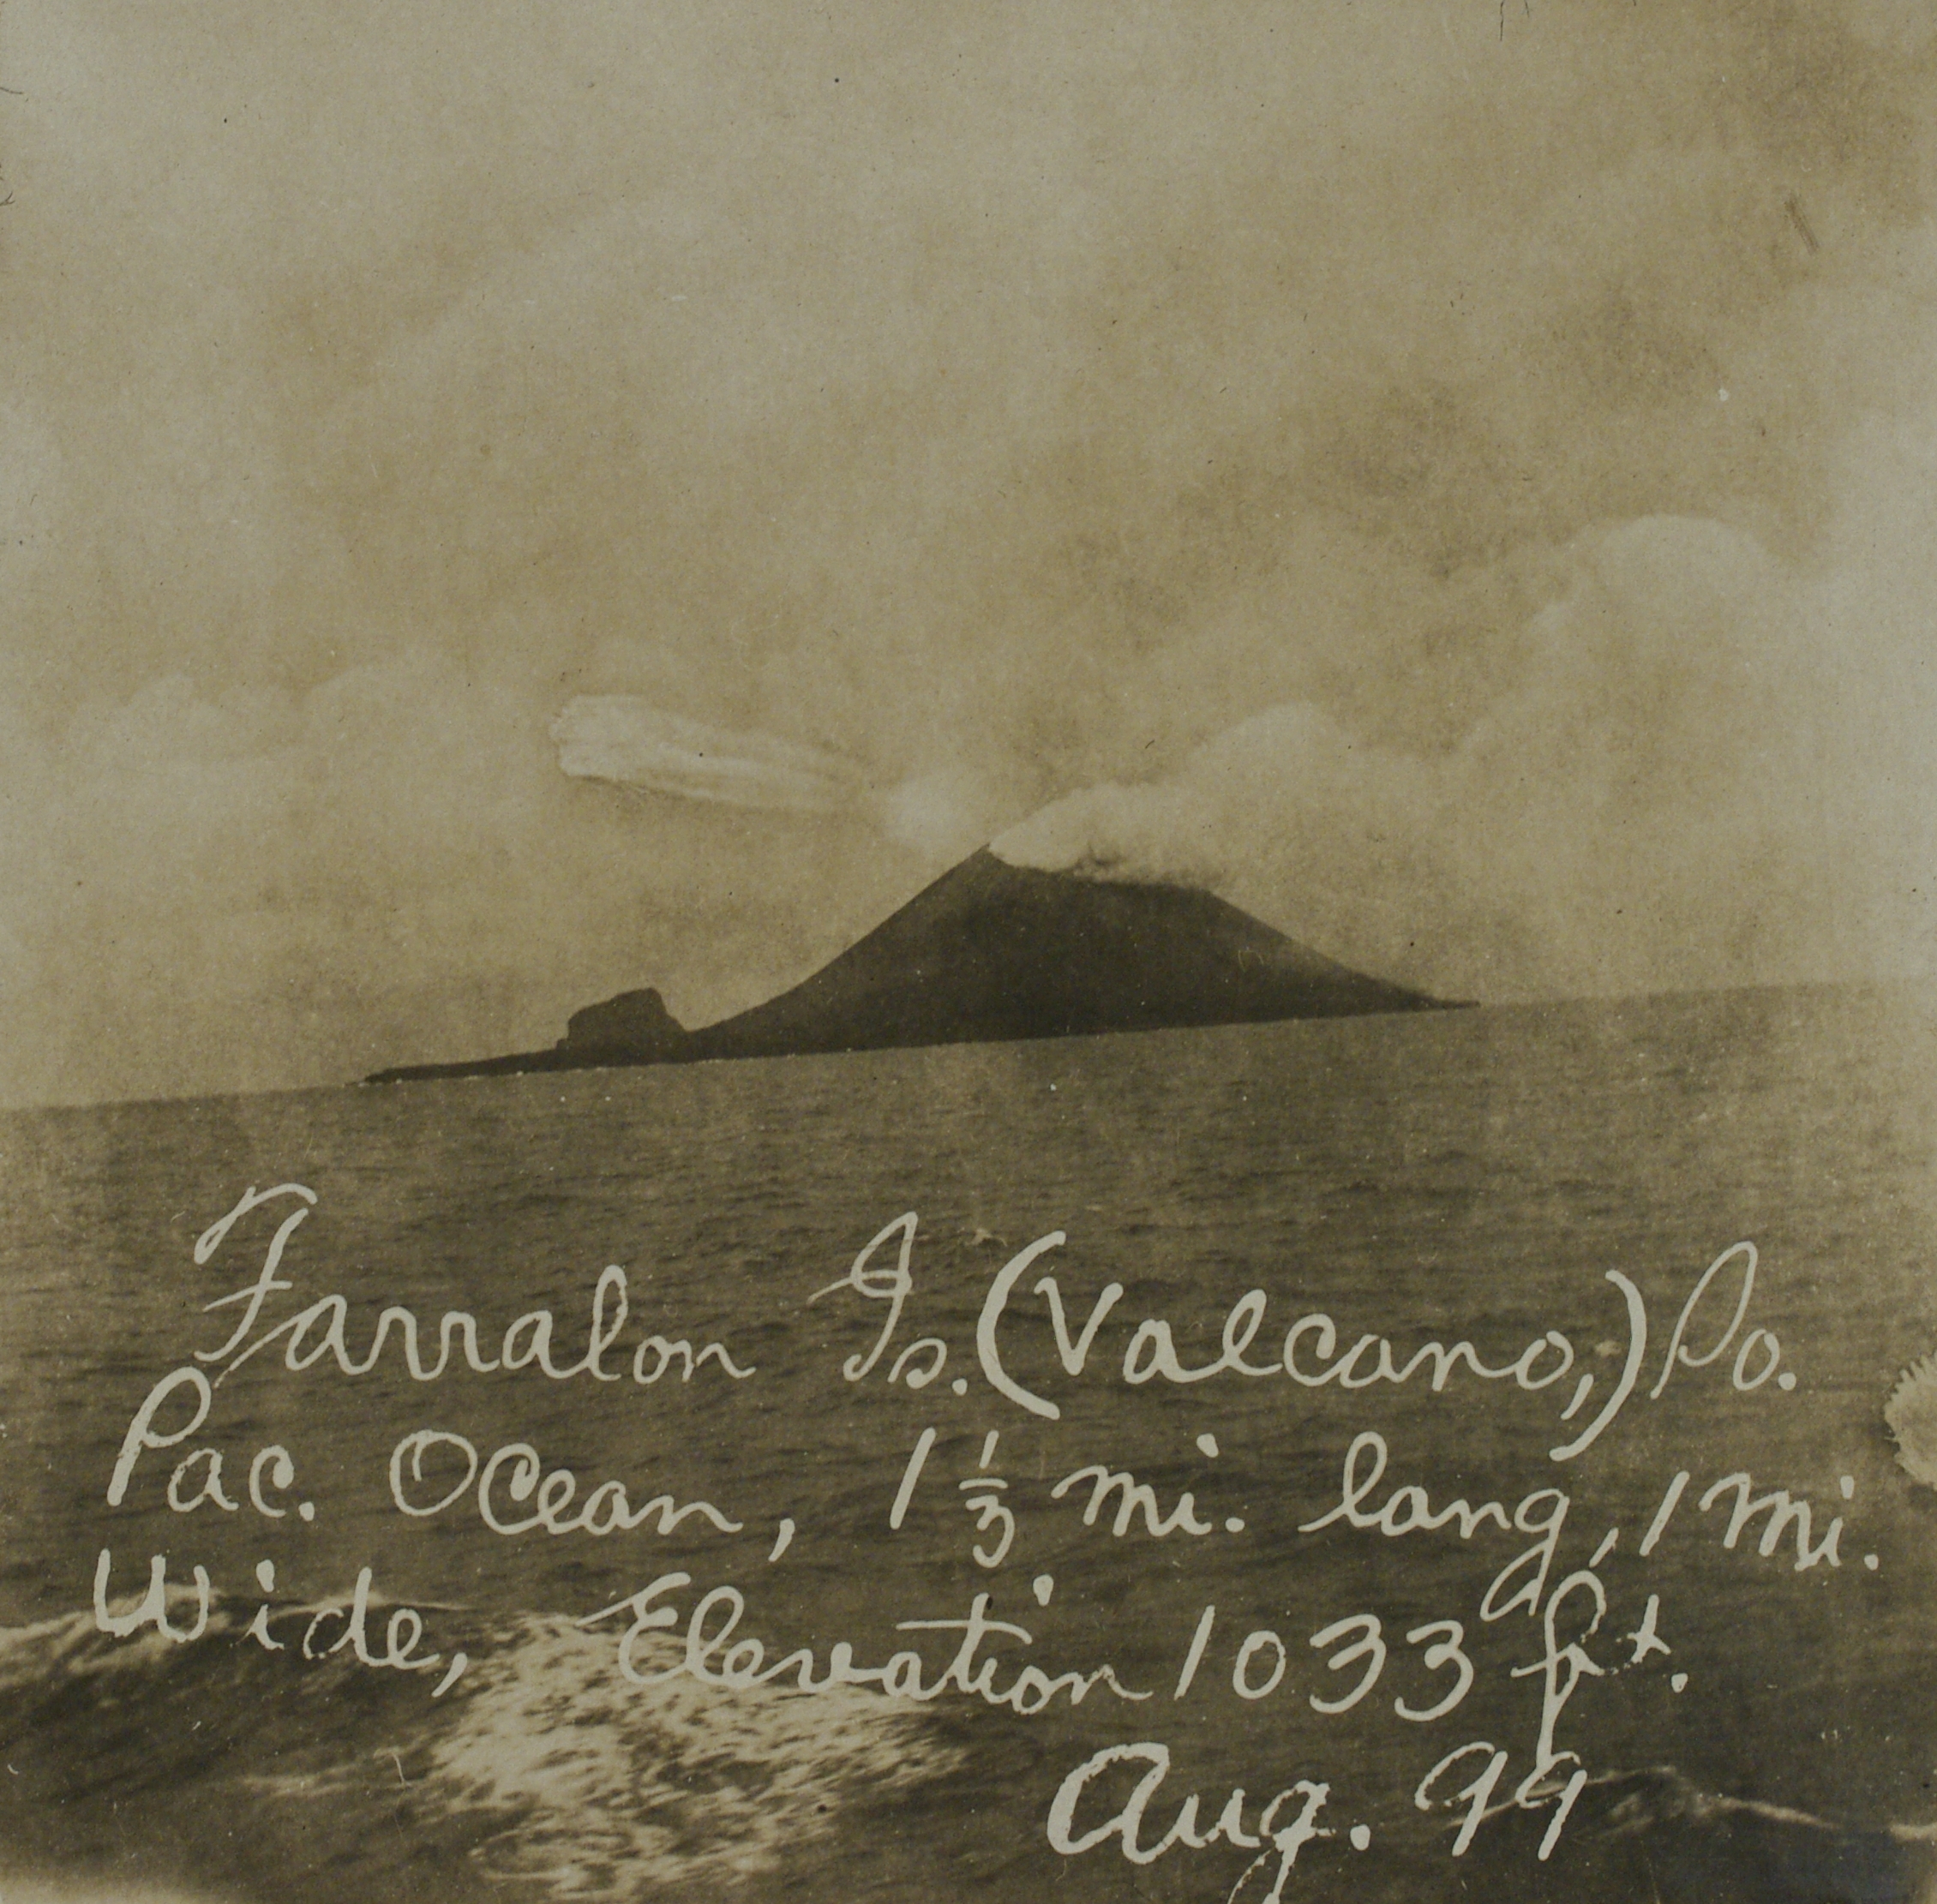 Farralon Is. (Valcano,) So.
Pac. Ocean, 1 1/3 mi. lang, 1 mi.
Wide, Elevation 1033 ft.
Aug. 99